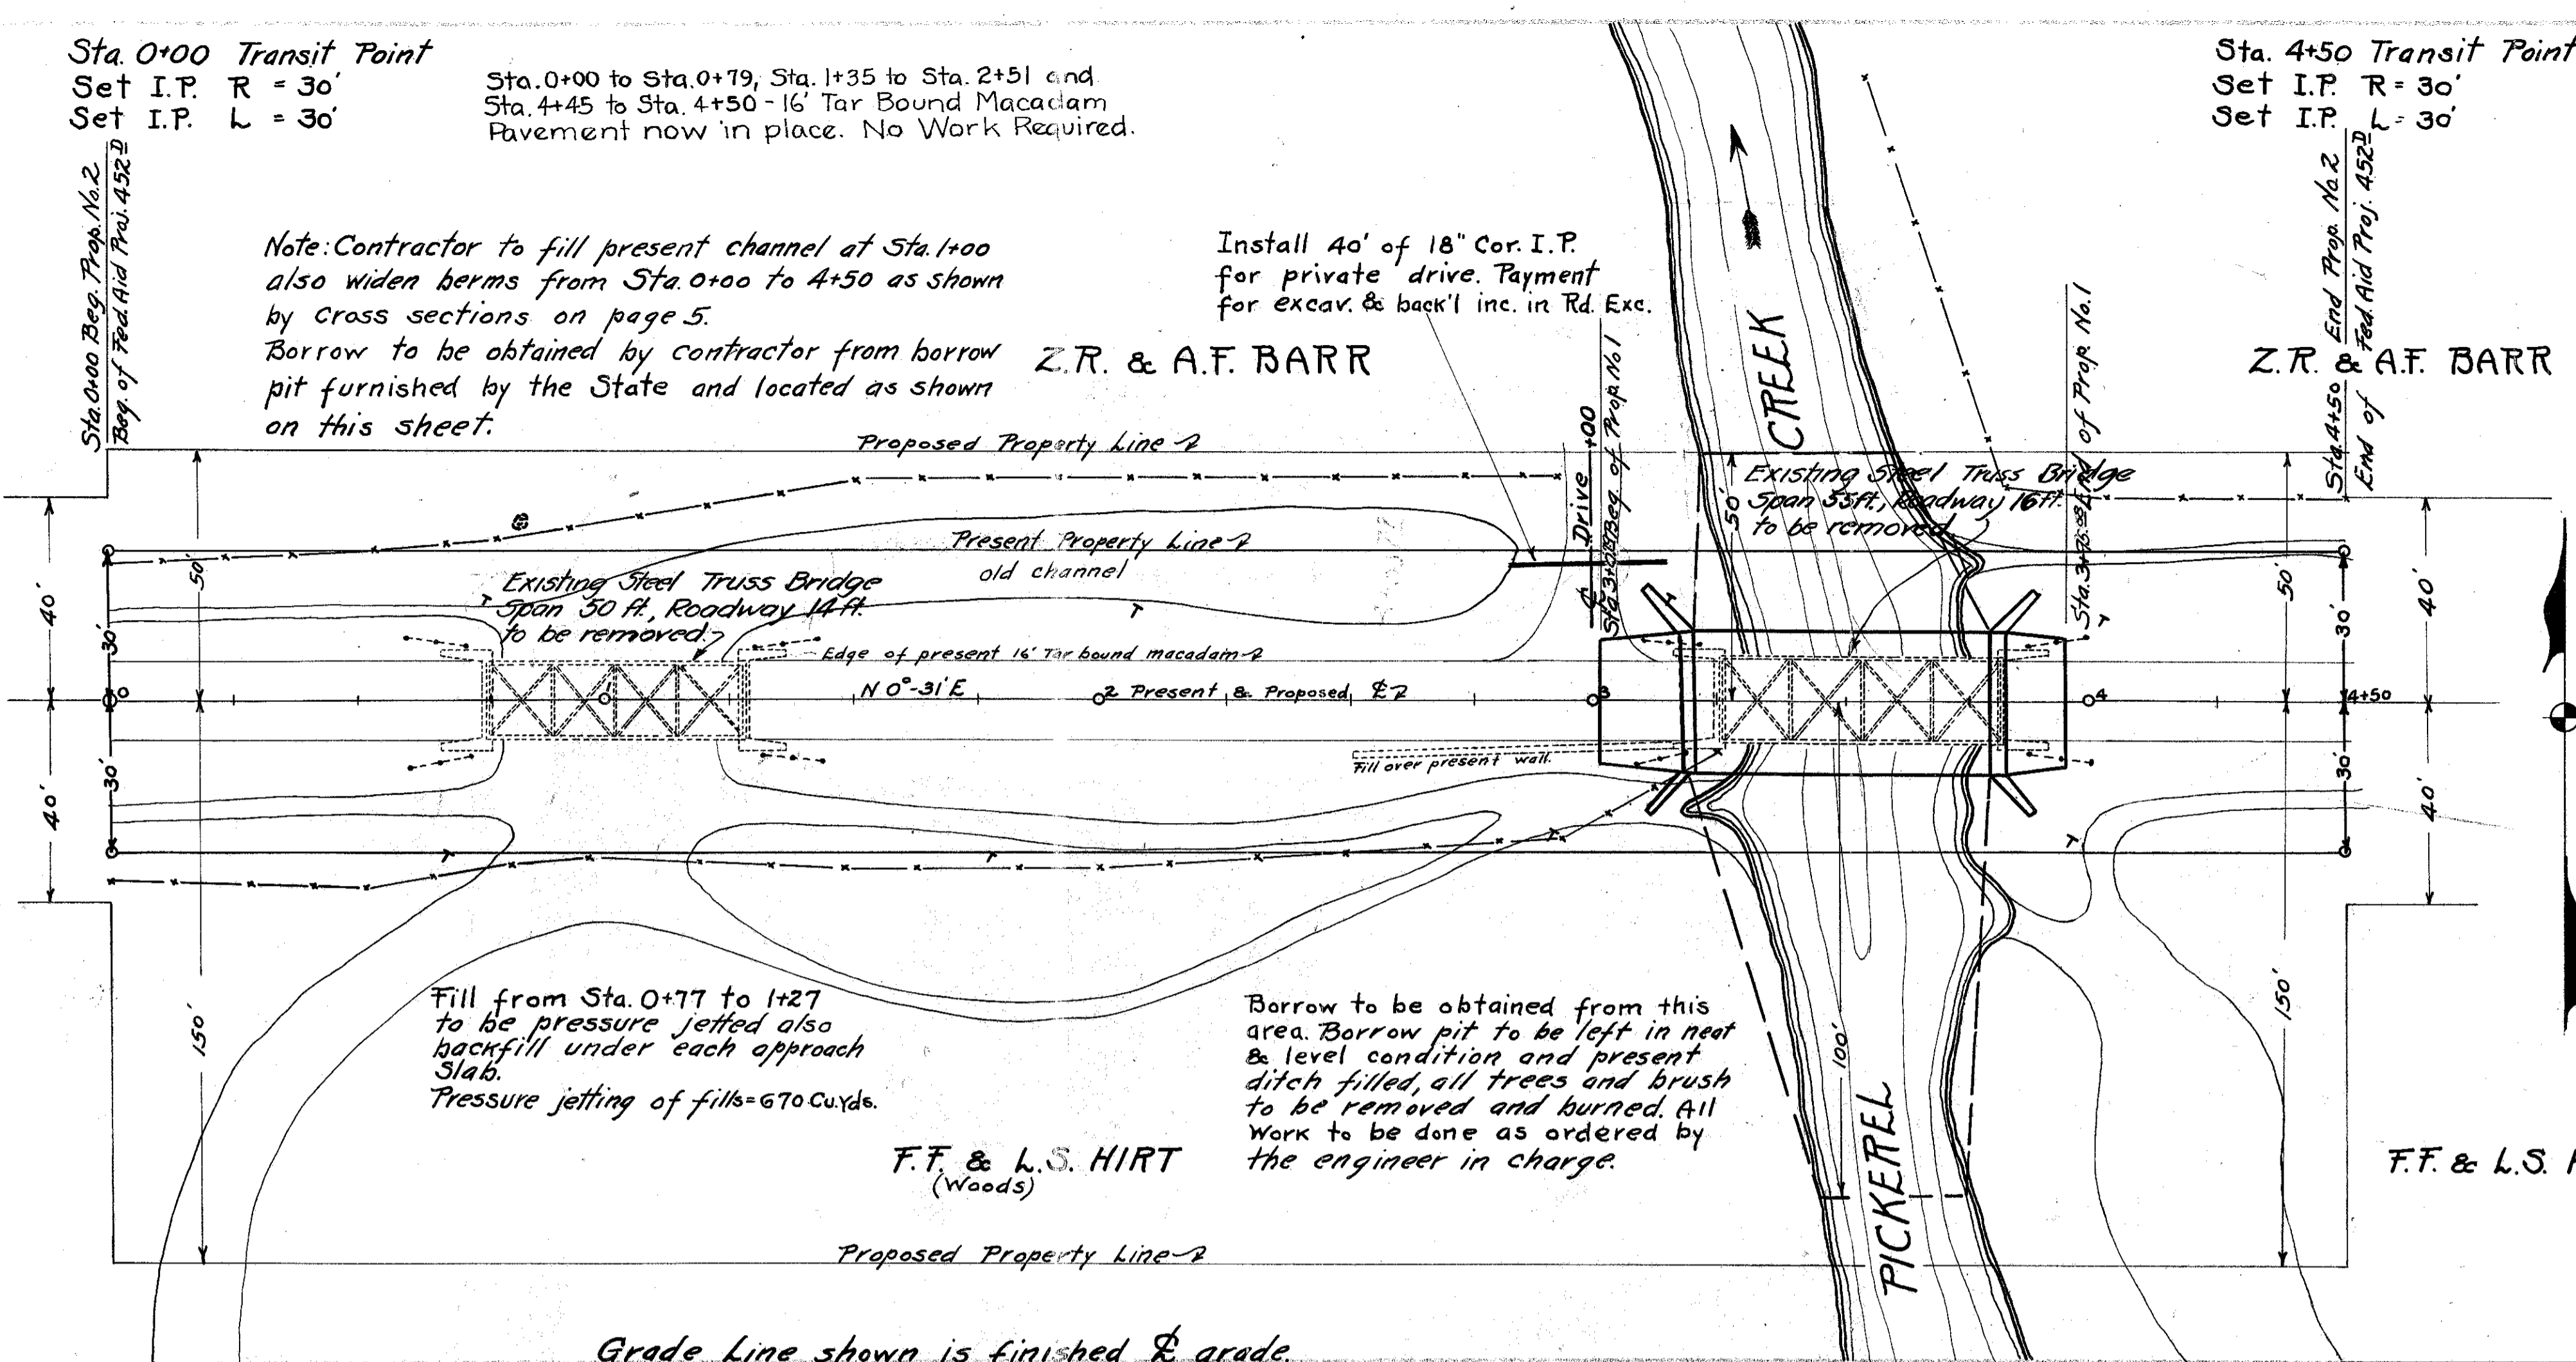 Sta. 0+00 Transit Point
Set I.P. R = 30'
Set I.P. L = 30'
Sta. 0+00 to Sta. 0+79, Sta. 1+35 to Sta. 2+51 and
Sta. 4+45 to Sta. 4+50 - 16' Tar Bound Macadam
Pavement now in place. No Work Required.
Sta. 4+50 Transit Point
Set I.P. R = 30'
Set I.P. L = 30'
Sta. 0+00 Beg. Prop. No. 2
Beg. of Fed. Aid Proj. 452D
Note: Contractor to fill present channel at Sta. 1+00
also widen berms from Sta. 0+00 to 4+50 as shown
by cross sections on page 5.
Borrow to be obtained by contractor from borrow
pit furnished by the State and located as shown
on this sheet.
Install 40' of 18" Cor. I.P.
for private drive. Payment
for excav. & back'l inc. in Rd. Exc.
Z.R. & A.F. BARR
CREEK
Sta. 4+50 End Prop. No. 2
End of Fed. Aid Proj. 452D
Z.R. & A.F. BARR
Proposed Property Line
℄ Drive +00
Beg. of Prop. No. 1
End of Prop. No. 1
Existing Steel Truss Bridge
Span 55 ft., Roadway 16 ft.
to be removed
Present Property Line
old channel
Existing Steel Truss Bridge
Span 50 ft., Roadway 14 ft.
to be removed
Edge of present 16' Tar bound macadam
50'
50'
50'
40'
30'
30'
40'
0
1
N 0°-31' E
2 Present & Proposed ℄
3
4
4+50
Fill over present wall.
40'
30'
30'
40'
T
T
T
T
T
T
T
Fill from Sta. 0+77 to 1+27
to be pressure jetted also
backfill under each approach
Slab.
Pressure jetting of fills = 670 Cu. Yds.
Borrow to be obtained from this
area. Borrow pit to be left in neat
& level condition and present
ditch filled, all trees and brush
to be removed and burned. All
Work to be done as ordered by
the engineer in charge.
150'
100'
150'
F.F. & L.S. HIRT
(Woods)
PICKEREL
F.F. & L.S.
Proposed Property Line
Grade Line shown is finished ℄ grade.